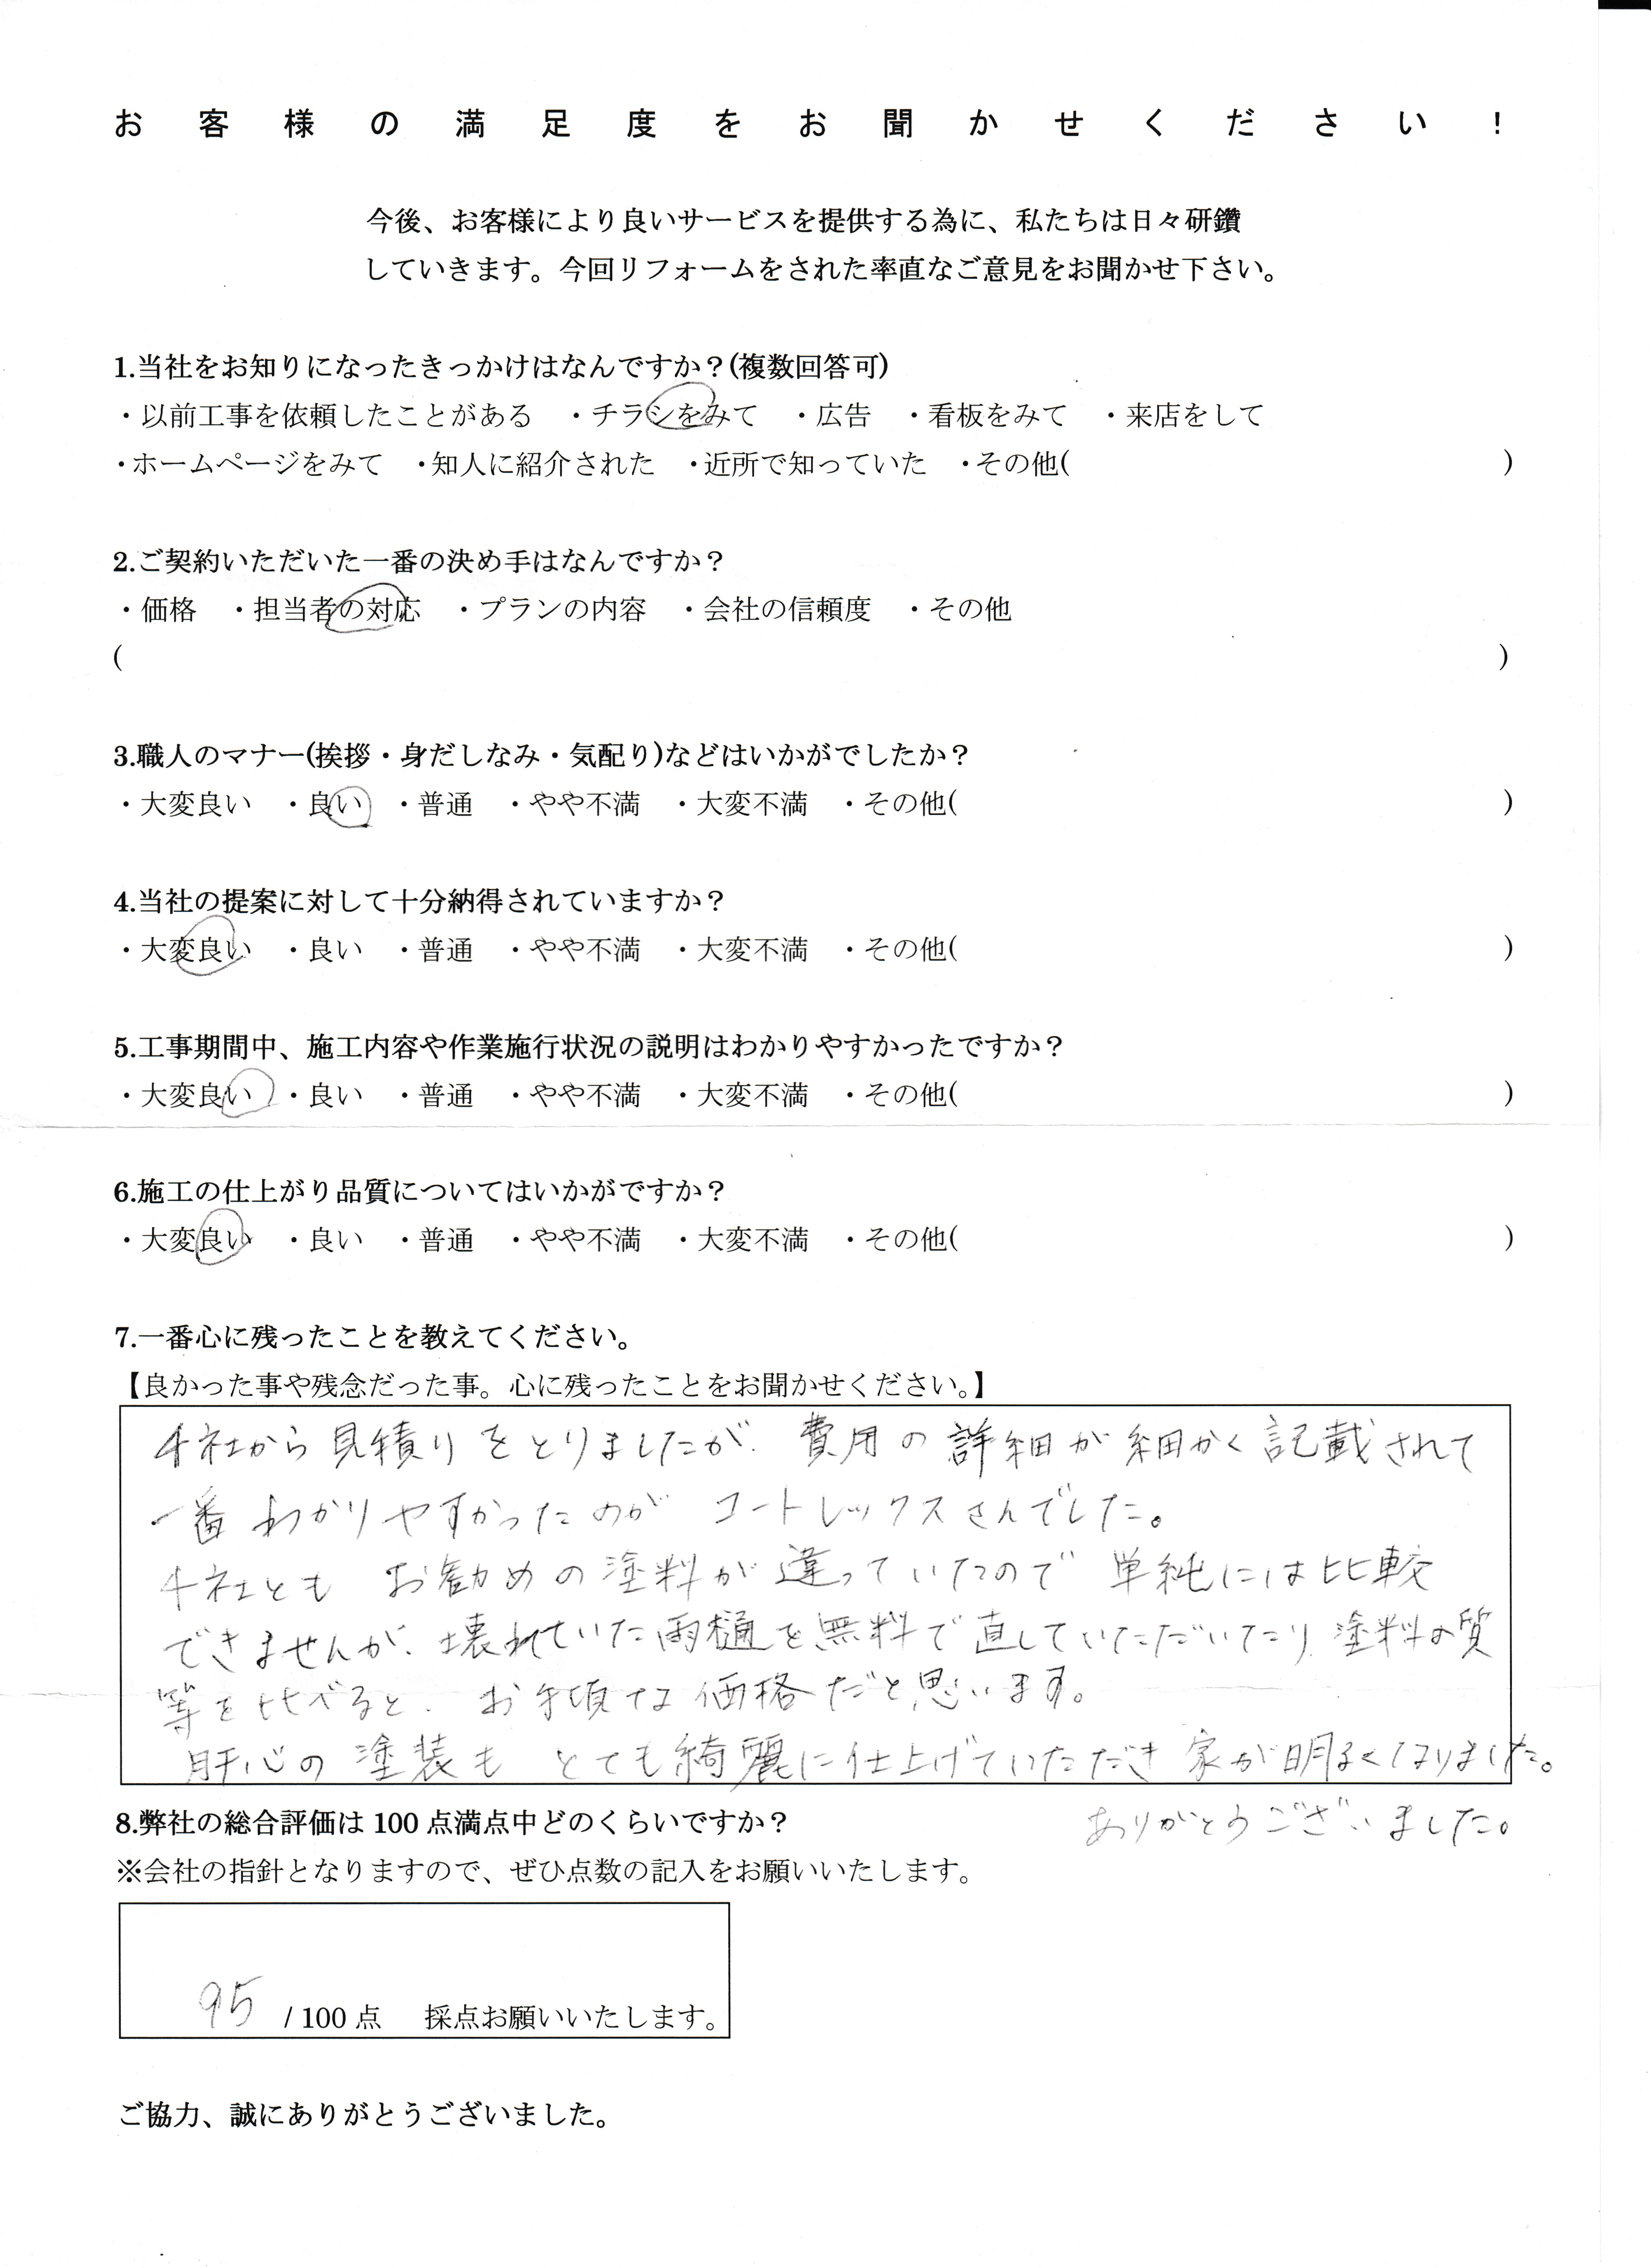 お客様の満足度をお聞かせください!
今後、お客様により良いサービスを提供する為に、私たちは日々研鑽
していきます。今回リフォームをされた率直なご意見をお聞かせ下さい。
1.当社をお知りになったきっかけはなんですか?(複数回答可)
・以前工事を依頼したことがある ・チラシをみて ・広告 ・看板をみて ・来店をして
・ホームページをみて ・知人に紹介された ・近所で知っていた ・その他( )
2.ご契約いただいた一番の決め手はなんですか?
・価格 ・担当者の対応 ・プランの内容 ・会社の信頼度 ・その他
( )
3.職人のマナー(挨拶・身だしなみ・気配り)などはいかがでしたか?
・大変良い ・良い ・普通 ・やや不満 ・大変不満 ・その他( )
4.当社の提案に対して十分納得されていますか?
・大変良い ・良い ・普通 ・やや不満 ・大変不満 ・その他( )
5.工事期間中、施工内容や作業施行状況の説明はわかりやすかったですか?
・大変良い ・良い ・普通 ・やや不満 ・大変不満 ・その他( )
6.施工の仕上がり品質についてはいかがですか?
・大変良い ・良い ・普通 ・やや不満 ・大変不満 ・その他( )
7.一番心に残ったことを教えてください。
【良かった事や残念だった事。心に残ったことをお聞かせください。】
4社から見積りをとりましたが、費用の詳細が細かく記載されて
一番わかりやすかったのが コートレックスさんでした。
4社とも お勧めの塗料が違っていたので 単純には比較
できませんが、壊れていた雨樋を無料で直していただいたり、塗料の質
等を比べると、お手頃な価格だと思います。
肝心の塗装も とても綺麗に仕上げていただき 家が明るくなりました。
ありがとうございました。
8.弊社の総合評価は 100 点満点中どのくらいですか?
※会社の指針となりますので、ぜひ点数の記入をお願いいたします。
95 / 100 点 採点お願いいたします。
ご協力、誠にありがとうございました。